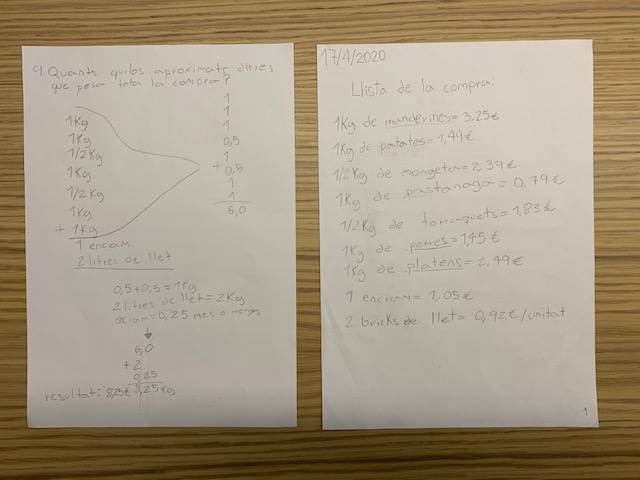 9. Quants quilos aproximats diries
que pesa tota la compra?
1Kg
1Kg
1/2Kg
1Kg
1/2Kg
1Kg
+ 1Kg
1 enciam
2 litres de llet
1
1
1
0,5
1
+ 0,5
1
1
6,0
0,5+0,5=1Kg
2 litres de llet=2Kg
enciam=0,25 mes o menys
6,0
+2
0,25
resultat: 8,25€ 8,25Kg
17/4/2020
Llista de la compra:
1Kg de mandarines=3,25€
1Kg de patates=1,49€
1/2Kg de mongeta=2,39€
1Kg de pastanaga=0,79€
1/2Kg de tomaquets=1,83€
1Kg de pomes=1,45€
1Kg de platens=2,49€
1 enciam=1,05€
2 bricks de llet=0,92€/unitat
1